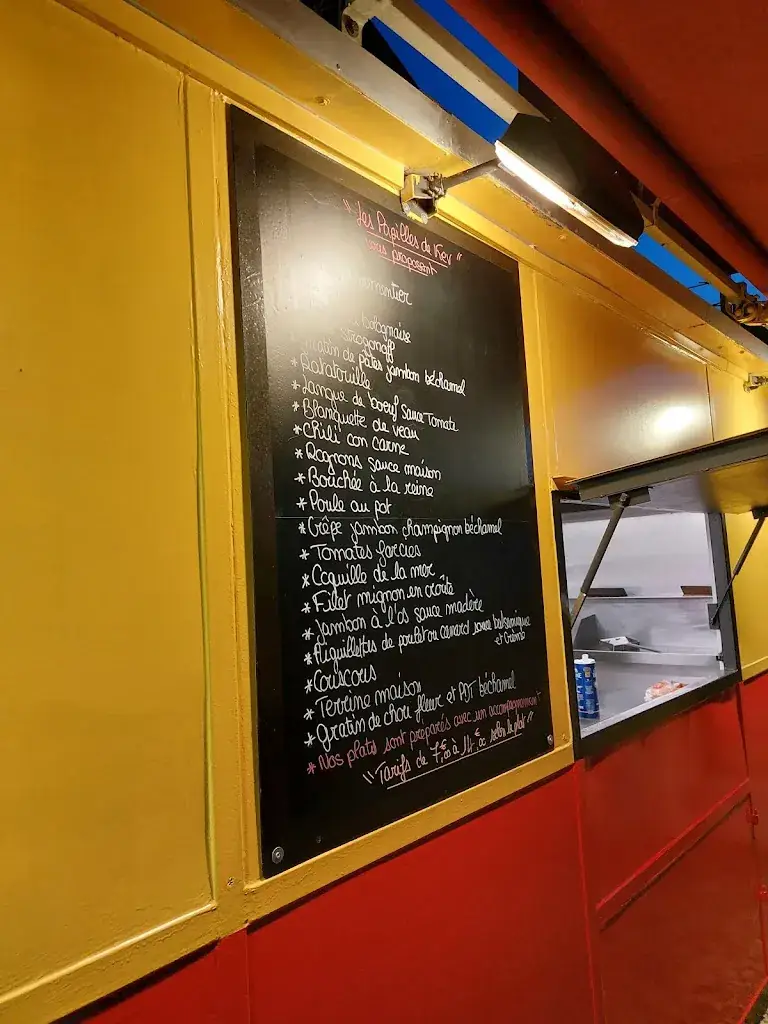 "Les Papilles de Kev"
vous proposent
parmentier
bolognaise
Strogonoff
* Gratin de pâtes jambon béchamel
* Ratatouille
* Langue de boeuf sauce Tomate
* Blanquette de veau
* Chili con carne
* Rognons sauce maison
* Bouchée à la reine
* Poule au pot
* Crêpe jambon champignon béchamel
* Tomates farcies
* Coquille de la mer
* Filet mignon en croûte
* Jambon à l'os sauce madère
* Aiguillettes de poulet ou canard sauce balsamique
et crème
* Couscous
* Terrine maison
* Gratin de chou fleur et PDT béchamel
* Nos plats sont préparés avec un accompagnement
"Tarifs de 7,€00 à 14,€00 selon le plat"